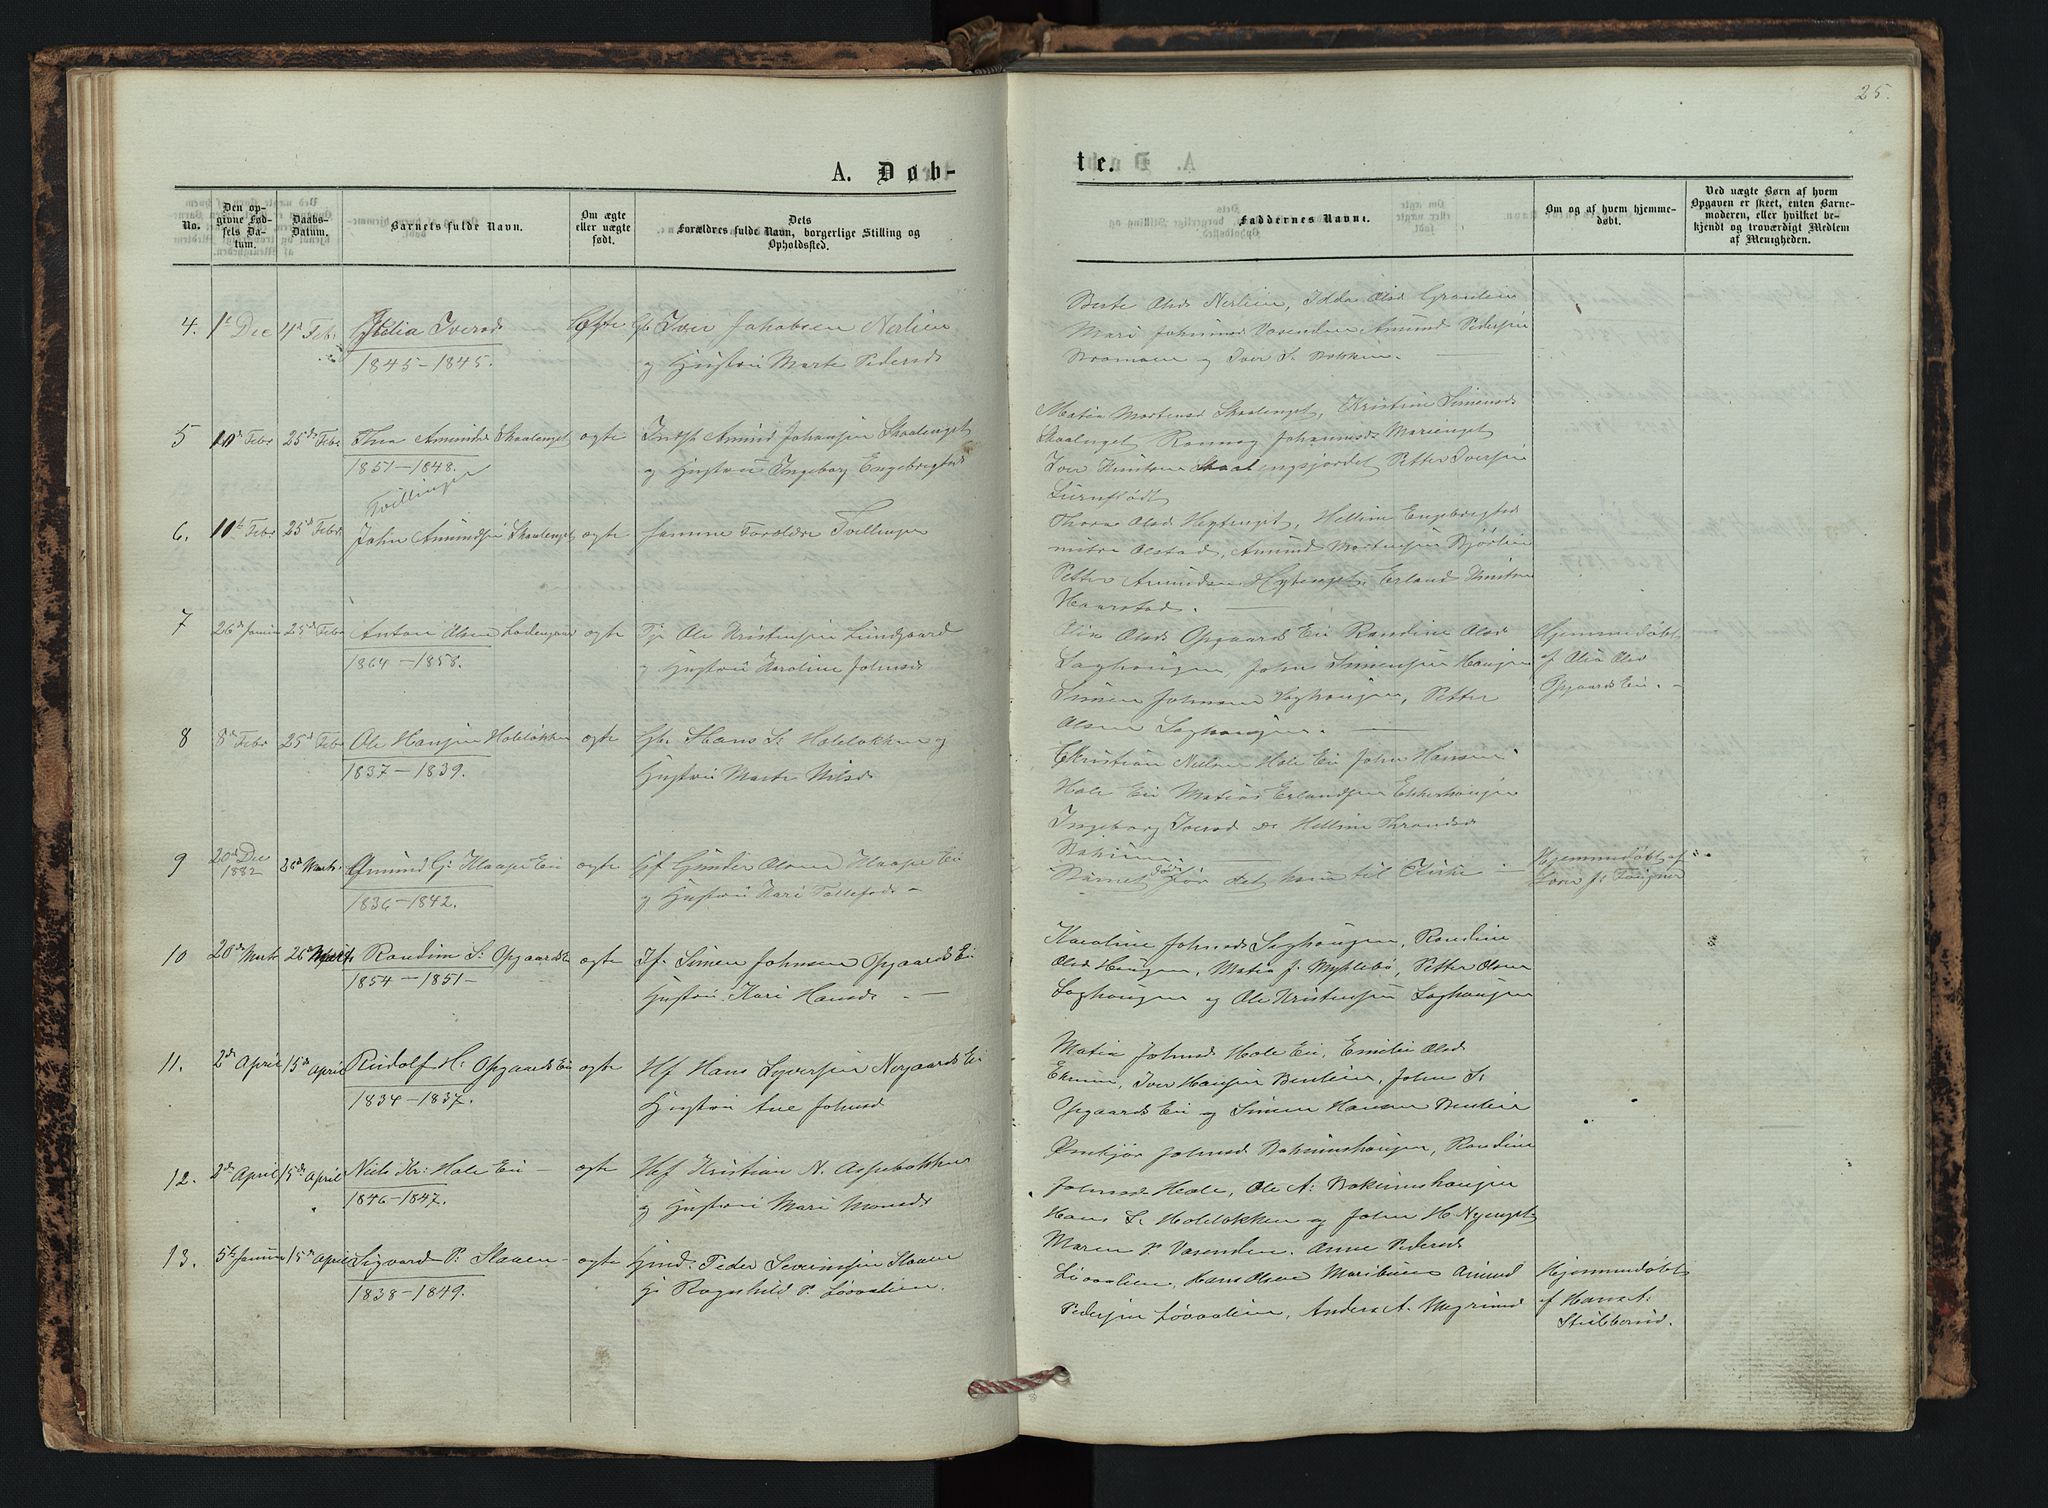 25.
A. Døb-
te.
No.
Den op-
givne Fød-
sels Da-
tum.
Daabs-
Datum.
Barnets fulde Navn.
Om ægte
eller uægte
født.
Dets
Forældres fulde Navn, borgerlige Stilling og
Opholdssted.
Faddernes Navne.
Om og af hvem hjemme-
døbt.
Ved uægte Børn af hvem
Opgaven er skeet, enten Barne-
moderen, eller hvilket be-
kjendt og troværdigt Medlem
af Menigheden.
4. 1te Dec 4de Febr Julia Iversd Ægte Gb Iver Jakobsen Nerlien
1845-1845. og Hustru Marte Pedersd
Berte Olsd Nerlien, Idda Olsd Granlien
Mari Johansd Vasenden Amund Pedersen
og Iver S. Bakken.
5 10de Febr 25de Febr Thea Amundsd Skaalenget ægte Indst Amund Johansen Skaalenget
1851-1848. og Hustru Ingeborg Engebregtsd
Tvillinger
Matia Mortensd Skaalenget, Kristine Simensd
Skaalenget Ronnog Johannesd Marienget
Iver Knutsen Skaalengsjordet Petter Iversen
6. 10de Febr 25de Febr John Amundsen Skaalenget ægte Samme Forældre Tvillinger
Thora Olsd Heggenget, Helline Engebregtsd
nitre Olstad, Amund Mortensen Bjørlien
Petter Amundsen Erland Knutsen
Haarstad.
7 26de Januar 25de Febr Anton Olsen ægte Tj. Ole Kristensen Lundgaard
1864-1858. og Hustru Karoline Johnsd
Olia Olsd Opgaards Ei Randine Olsd
Laghaugen, John Simensen Haugen
Simen Johnsen Laghaugen, Petter
Olsen Laghaugen.
Hjemmedøbt
af Olia Olsd
Opgaards Ei.
8 8de Febr 25de Febr Ole Hansen Holeløkken ægte Gbr Hans S. Holeløkken og
1837-1839. Hustru Marte Nilsd
Christian Nielsen Hole Ei John Hansen
Hole Ei Matias Erlandsen Ekkerhaugen
Ingeborg Iversd Ds Helline Throndsd
9 20de Dec
1882 26de Marts Amund G. Klaape Ei ægte Hf Gunder Olsen Klaape Ei
1836-1842. og Hustru Kari Tollefsd
Barnet Døde før det kom til Kirke
Hjemmedøbt af
Lærer J. Fougner
10 20de Marts 26de Marts Randine S. Opgaards Ei ægte If. Simen Johnsen Opgaards Ei
1854-1851 Hustru Kari Hansd.
Karoline Johnsd Laghaugen, Randine
Olsd Haugen, Matia J. Myklebø, Petter Olsen
Laghaugen og Ole Kristensen Laghaugen
11. 2de April 15de April Rudolf H. Opgaards Ei ægte Hf Hans Syversen Nergaards Ei
1834-1837. Hustru Ane Johnsd
Matia Johnsd Hole Ei, Emilie Olsd
Ekrum, Iver Hansen Benlien, John S.
Opgaards Ei og Simen Hansen Benlien
12. 2de April 15de April Niels Kr. Hole Ei ægte Hf Kristian N. Aspebakken
1846-1847. og Hustru Mari Monsd
Johnsd Bakumshaugen, Randine
Johnsd Hole, Ole A. Bakumshaugen
Hans S. Holeløkken og John H. Nyenget
13. 5te Januar 15de April Sigvard P. Slaaen ægte Peder Severinsen Slaaen
1838-1849. H. Ragnhild P. Løvaalien.
Maren P. Vasenden. Anne Pedersd
Løvaalien, Hans Olsen Amund
Pedersen Løvaalien, Anders A. Megrund
Hjemmedøbt
af Hans A.
Stubberud.